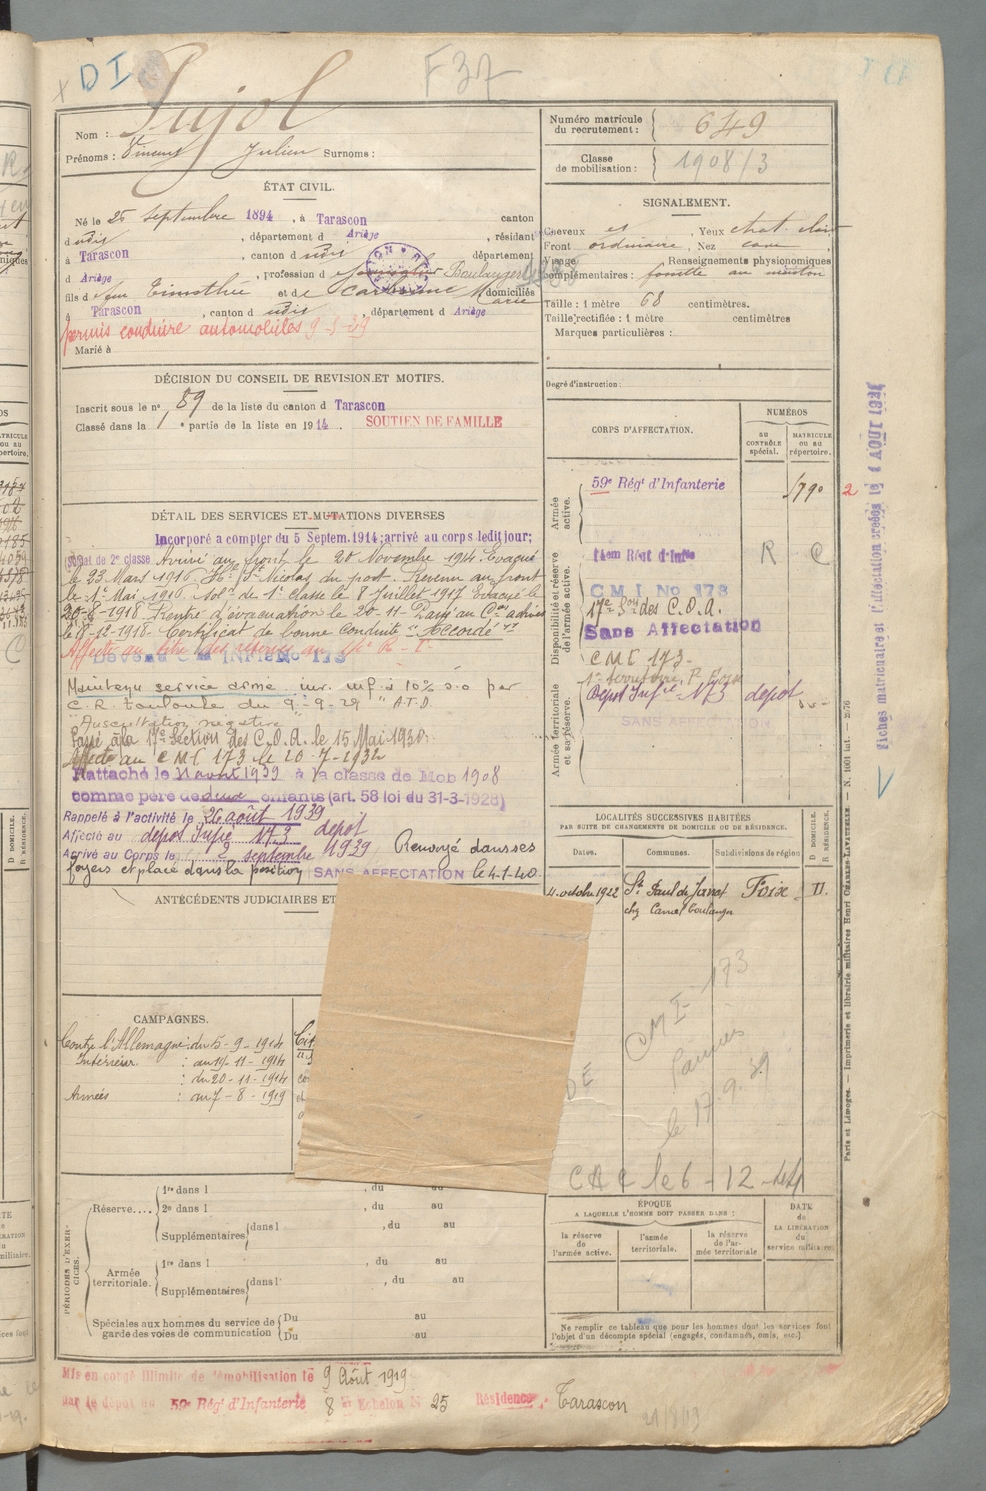 DI
F 37
Nom : Pujol
Prénoms : Vincent Julien Surnoms :
Numéro matricule du recrutement : 649
Classe de mobilisation : 1908/3
ÉTAT CIVIL.
Né le 25 septembre 1894, à Tarascon canton
d udit, département d Ariège, résidant
à Tarascon, canton d udit département
d Ariège, profession d Boulanger
fils d Timothée et de Marie domiciliés
à Tarascon, canton d udit, département d Ariège
permis conduire automobiles 9-5-39
Marié à
SIGNALEMENT.
Cheveux Yeux chat. clair
Front ordinaire, Nez cave
Visage Renseignements physionomiques
complémentaires : fossette au menton
Taille : 1 mètre 68 centimètres.
Taille rectifiée : 1 mètre centimètres
Marques particulières :
Degré d'instruction :
DÉCISION DU CONSEIL DE REVISION ET MOTIFS.
Inscrit sous le n° 89 de la liste du canton d Tarascon
Classé dans la 1e partie de la liste en 1914. SOUTIEN DE FAMILLE
CORPS D'AFFECTATION.
NUMÉROS
au CONTRÔLE spécial.
MATRICULE ou au répertoire.
Armée active.
59e Régt d'Infanterie
2
Disponibilité et réserve de l'armée active.
R C
C M I No 173
17e Son des C.O.A.
Sans Affectation
CMI 173
Armée territoriale et sa réserve.
Depot Infie 173 depot
SANS AFFECTATION
DÉTAIL DES SERVICES ET MUTATIONS DIVERSES
Incorporé a compter du 5 Septem. 1914; arrivé au corps ledit jour;
Soldat de 2e classe Arrivé au front le 20 Novembre 1914 Evacué
le 23 Mars 1916 St Nicolas du port. Revenu au front
le 1er Mai 1916 Solt de 1e classe le 8 Juillet 1917 Evacué le
20-8-1918 Rentré d'évacuation le 20-11
le 18-12-1918 Certificat de bonne conduite "Accordé"
Devenu Cie INFie No 173
Maintenu service armé inv. inf. à 10% s.o par
C.R. Toulouse du 9-9-29 A.T.D.
"Auscultation négative"
Passé à la 17e Section des C.O.A. le 15 Mai 1930.
Affecté au CMI 173 le 20-7-1934
Rattaché le 11 avril 1939 à la classe de Mob 1908
comme père de deux enfants (art. 58 loi du 31-3-1928)
Rappelé à l'activité le 26 août 1939
Affecté au depot Infie 173 depot
Arrivé au Corps le 2 septembre 1939 Renvoyé dans ses
foyers et placé dans la position SANS AFFECTATION le 4-1-40
ANTÉCÉDENTS JUDICIAIRES ET
LOCALITÉS SUCCESSIVES HABITÉES
PAR SUITE DE CHANGEMENTS DE DOMICILE OU DE RÉSIDENCE.
D DOMICILE.
R RÉSIDENCE.
Dates. Communes. Subdivisions de région
4 octobre 1922 St Paul de Jarrat Foix
chez Boulanger
CMI 173
Pamiers
le 17.9.39
le 6-12-44
CAMPAGNES.
Contre l'Allemagne: du 5-9-1914
Intérieur : au 19-11-1914
: du 20-11-1914
Armées : au 7-8-1919
PÉRIODES D'EXERCICES.
Réserve....
1re dans l , du au
2e dans l , du au
Supplémentaires dans l , du au
Armée territoriale.
1re dans l , du au
Supplémentaires dans l , du au
Spéciales aux hommes du service de garde des voies de communication
Du au
Du au
ÉPOQUE
A LAQUELLE L'HOMME DOIT PASSER DANS :
la réserve de l'armée active.
l'armée territoriale.
la réserve de l'armée territoriale
DATE de LA LIBÉRATION du service militaire.
Ne remplir ce tableau que pour les hommes dont les services font
l'objet d'un décompte spécial (engagés, condamnés, omis, etc.)
Mis en congé illimité de démobilisation le 9 Août 1919
par le dépôt du 59e Régt d'Infanterie 8e Echelon N° 25 Résidence Tarascon
Fiches matriculaire et d'affectation créées le 4 AOUT 1926
Paris et Limoges. — Imprimerie et librairie militaires Henri CHARLES-LAVAUZELLE.